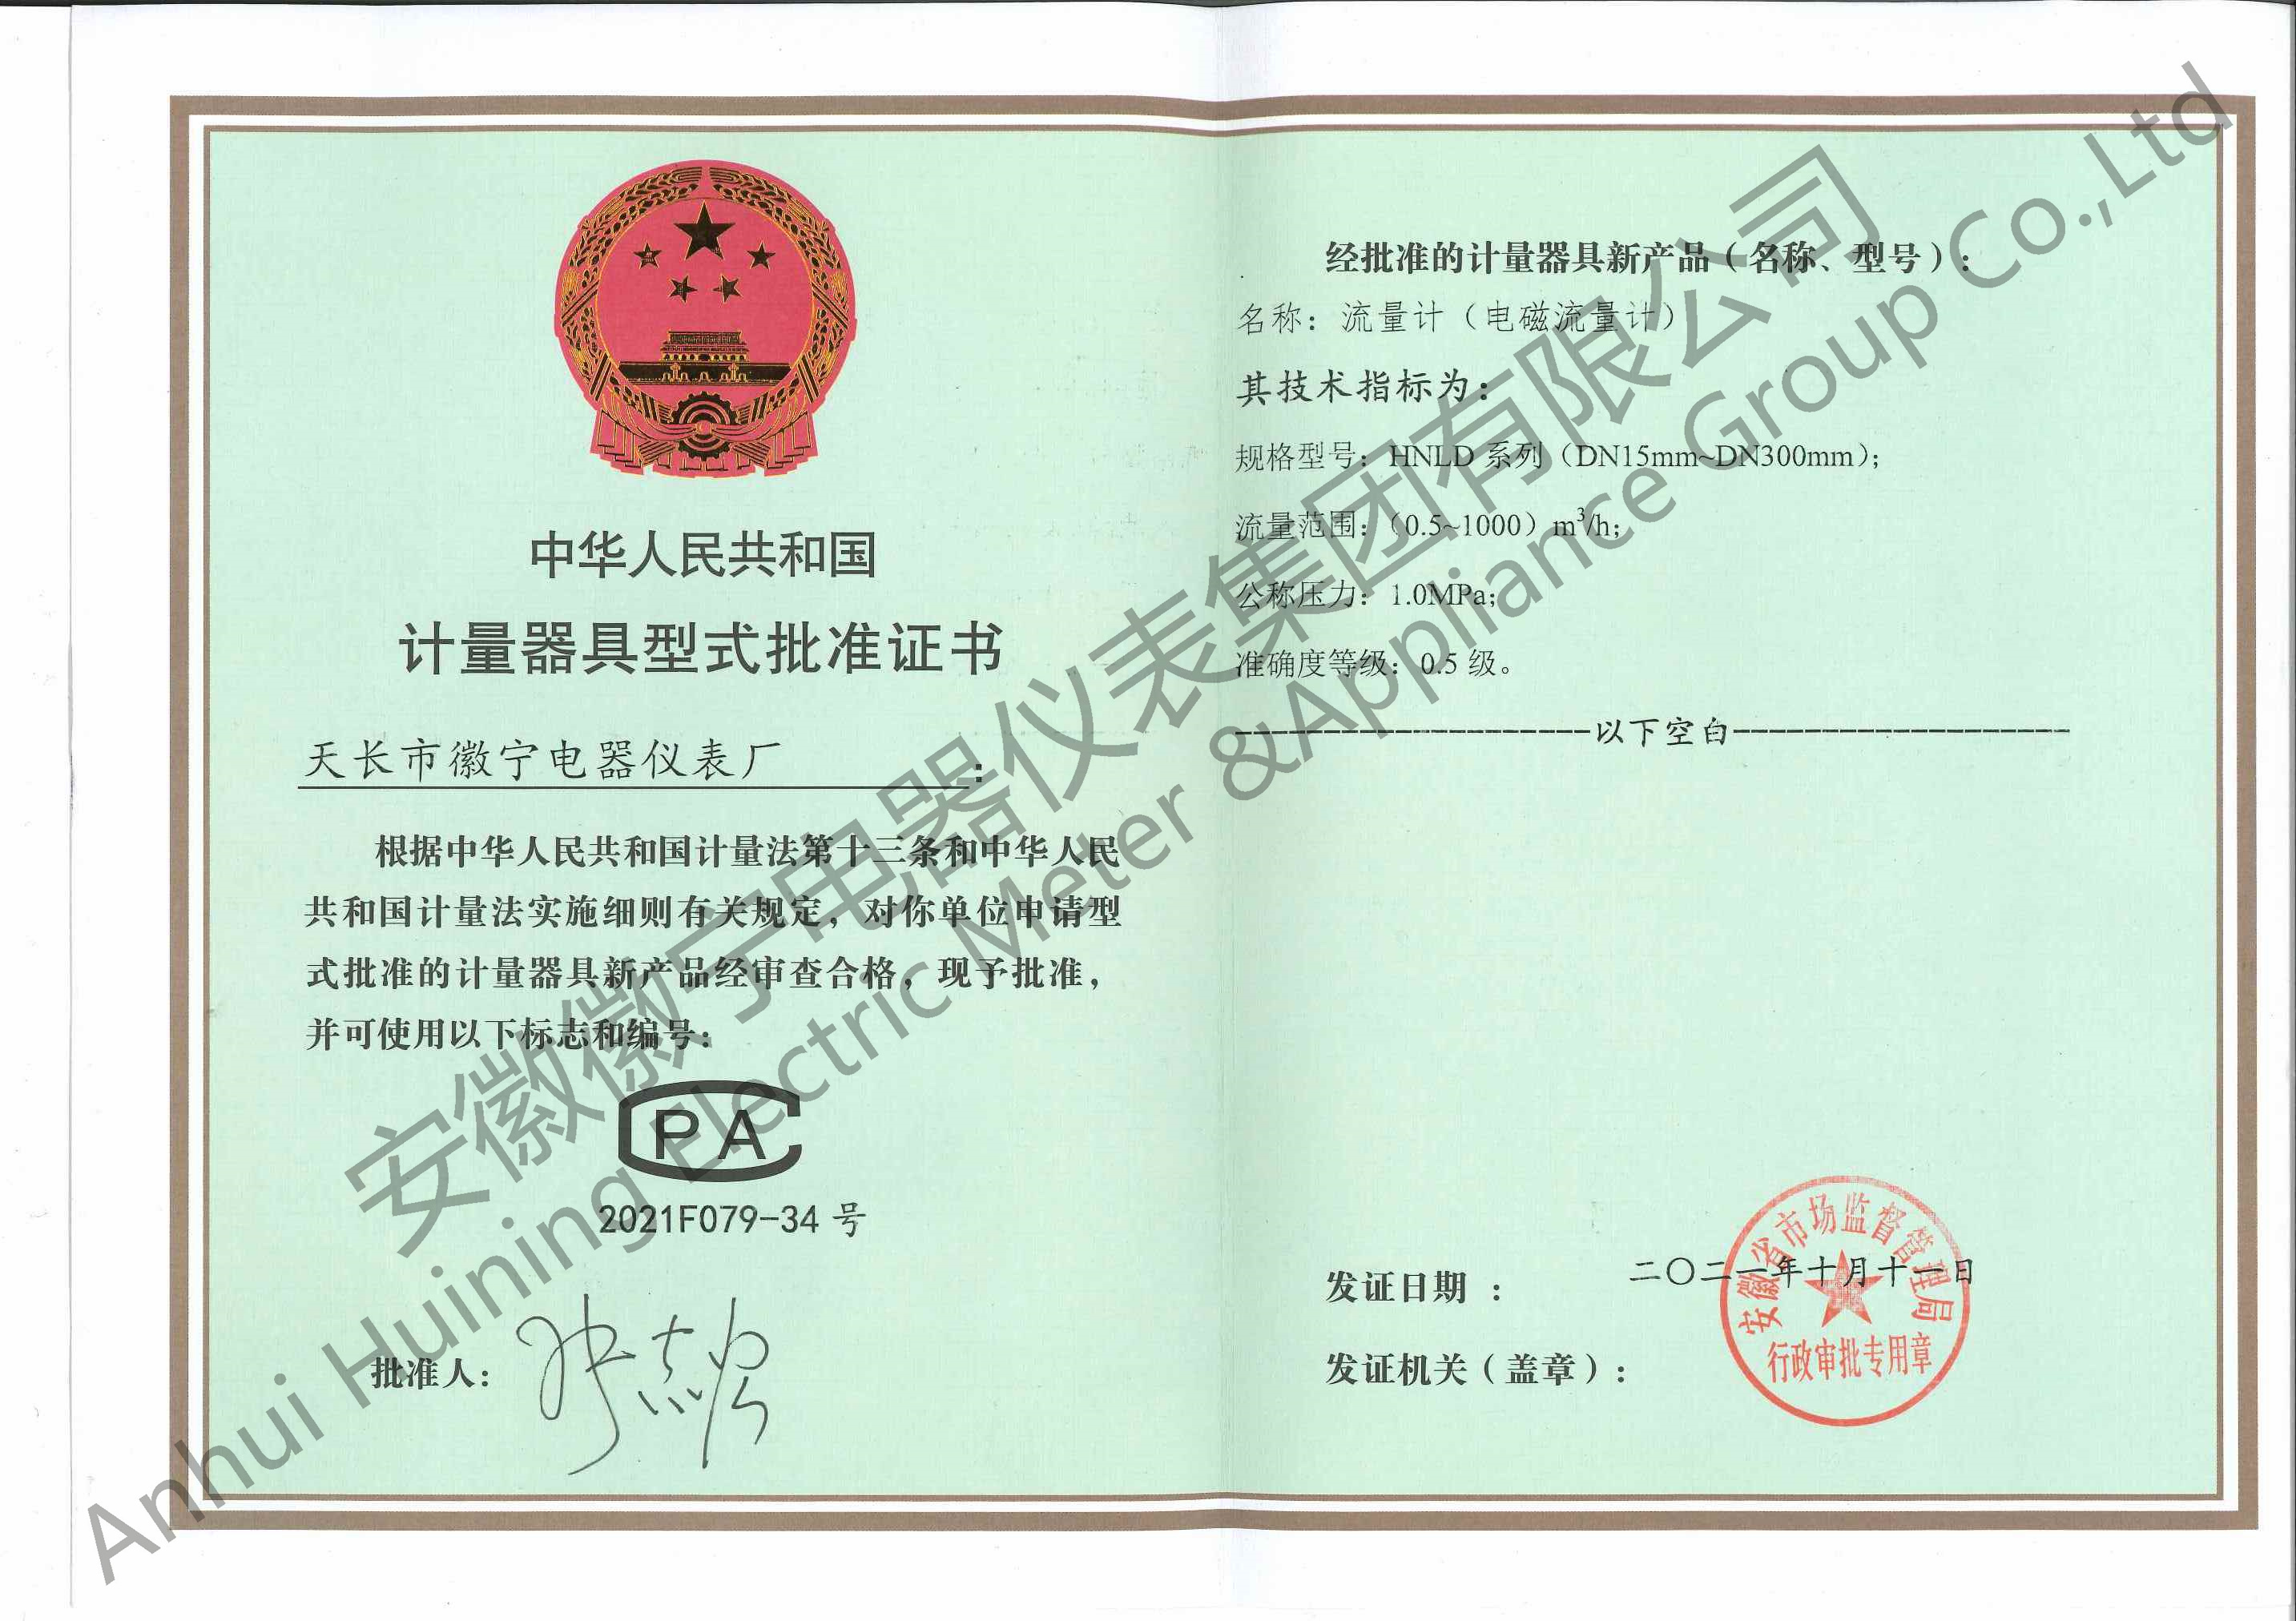 中华人民共和国
计量器具型式批准证书
天长市徽宁电器仪表厂:
根据中华人民共和国计量法第十三条和中华人民
共和国计量法实施细则有关规定，对你单位申请型
式批准的计量器具新产品经审查合格，现予批准，
并可使用以下标志和编号：
CPA
2021F079-34 号
批准人：
经批准的计量器具新产品（名称、型号）：
名称：流量计（电磁流量计）
其技术指标为：
规格型号：HNLD 系列（DN15mm~DN300mm）；
流量范围：（0.5~1000）m³/h；
公称压力：1.0MPa；
准确度等级：0.5 级。
--------------------以下空白-------------------
发证日期 ： 二〇二一年十月十一日
发证机关（盖章）：
安徽省市场监督管理局
行政审批专用章
安徽徽宁电器仪表集团有限公司
Anhui Huining Electric Meter &Appliance Group Co.,Ltd